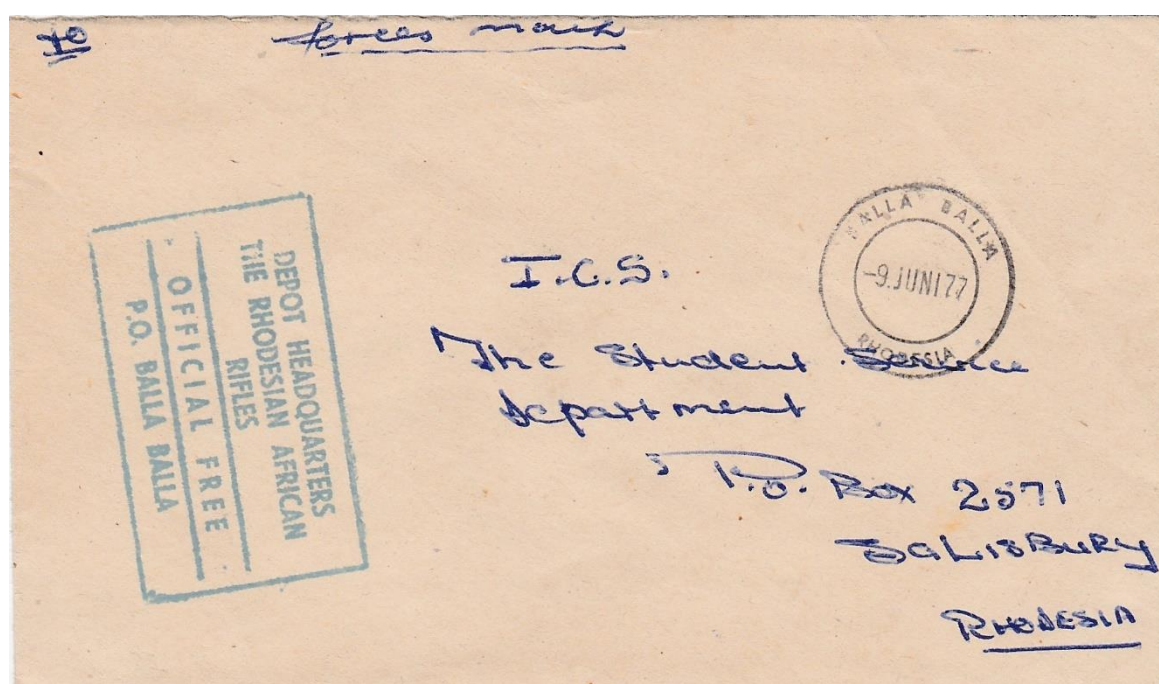 to forces mail
DEPOT HEADQUARTERS
THE RHODESIAN AFRICAN
RIFLES
OFFICIAL FREE
P.O. BALLA BALLA
BALLA BALLA
-9.JUN177
RHODESIA
I.C.S.
The Student Service
Department
P.O. Box 2571
SaLisBuRy
RHODESIA